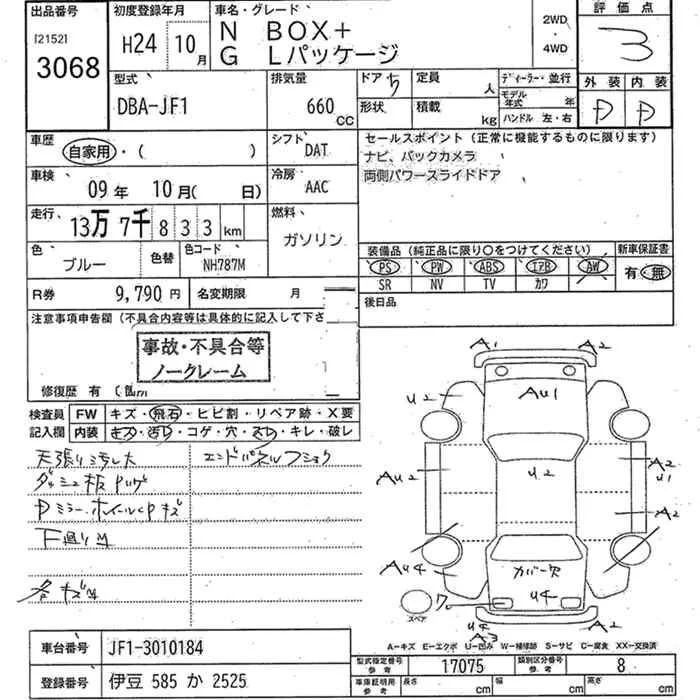 出品番号
[2152]
3068
初度登録年月
H24 10月
車名・グレード
N BOX+
G Lパッケージ
2WD
・
4WD
評価点
3
型式
DBA-JF1
排気量
660
CC
ドア 5
形状
定員 人
積載 kg
ディーラー・並行
モデル年式 年
ハンドル 左・右
外装 内装
D D
車歴
自家用・( )
シフト
DAT
車検
09年 10月( 日)
冷房
AAC
走行
13万 7千 8 3 3 km
燃料
ガソリン
色
ブルー
色替
色コード
NH787M
R券 9,790円 名変期限 月
セールスポイント(正常に機能するものに限ります)
ナビ、バックカメラ
両側パワースライドドア
装備品(純正品に限り○をつけてください)
PS PW ABS エアB AW
SR NV TV カワ
新車保証書
有・無
後日品
注意事項申告欄(不具合内容等は具体的に記入して下さ
事故・不具合等
ノークレーム
修復歴 有
検査員
記入欄
FW キズ・飛石・ヒビ割・リペア跡・X要
内装 キズ・汚レ・コゲ・穴・スレ・キレ・破レ
天張り汚レ大
エンドパネルフショク
下廻りサ
A1 A2
U2 AU1
AU2 U2 A2
U1
A2
AU4 カバー欠
U4
7
スペア
U4 A2
A3
A=キズ E=エクボ U=凹み W=補修跡 S=サビ C=腐食 XX=交換済
車台番号 JF1-3010184
登録番号 伊豆 585 か 2525
型式指定番号
参考
17075
類別区分番号
参考
8
車庫証明用
参考
長さ cm 幅 cm 高さ cm